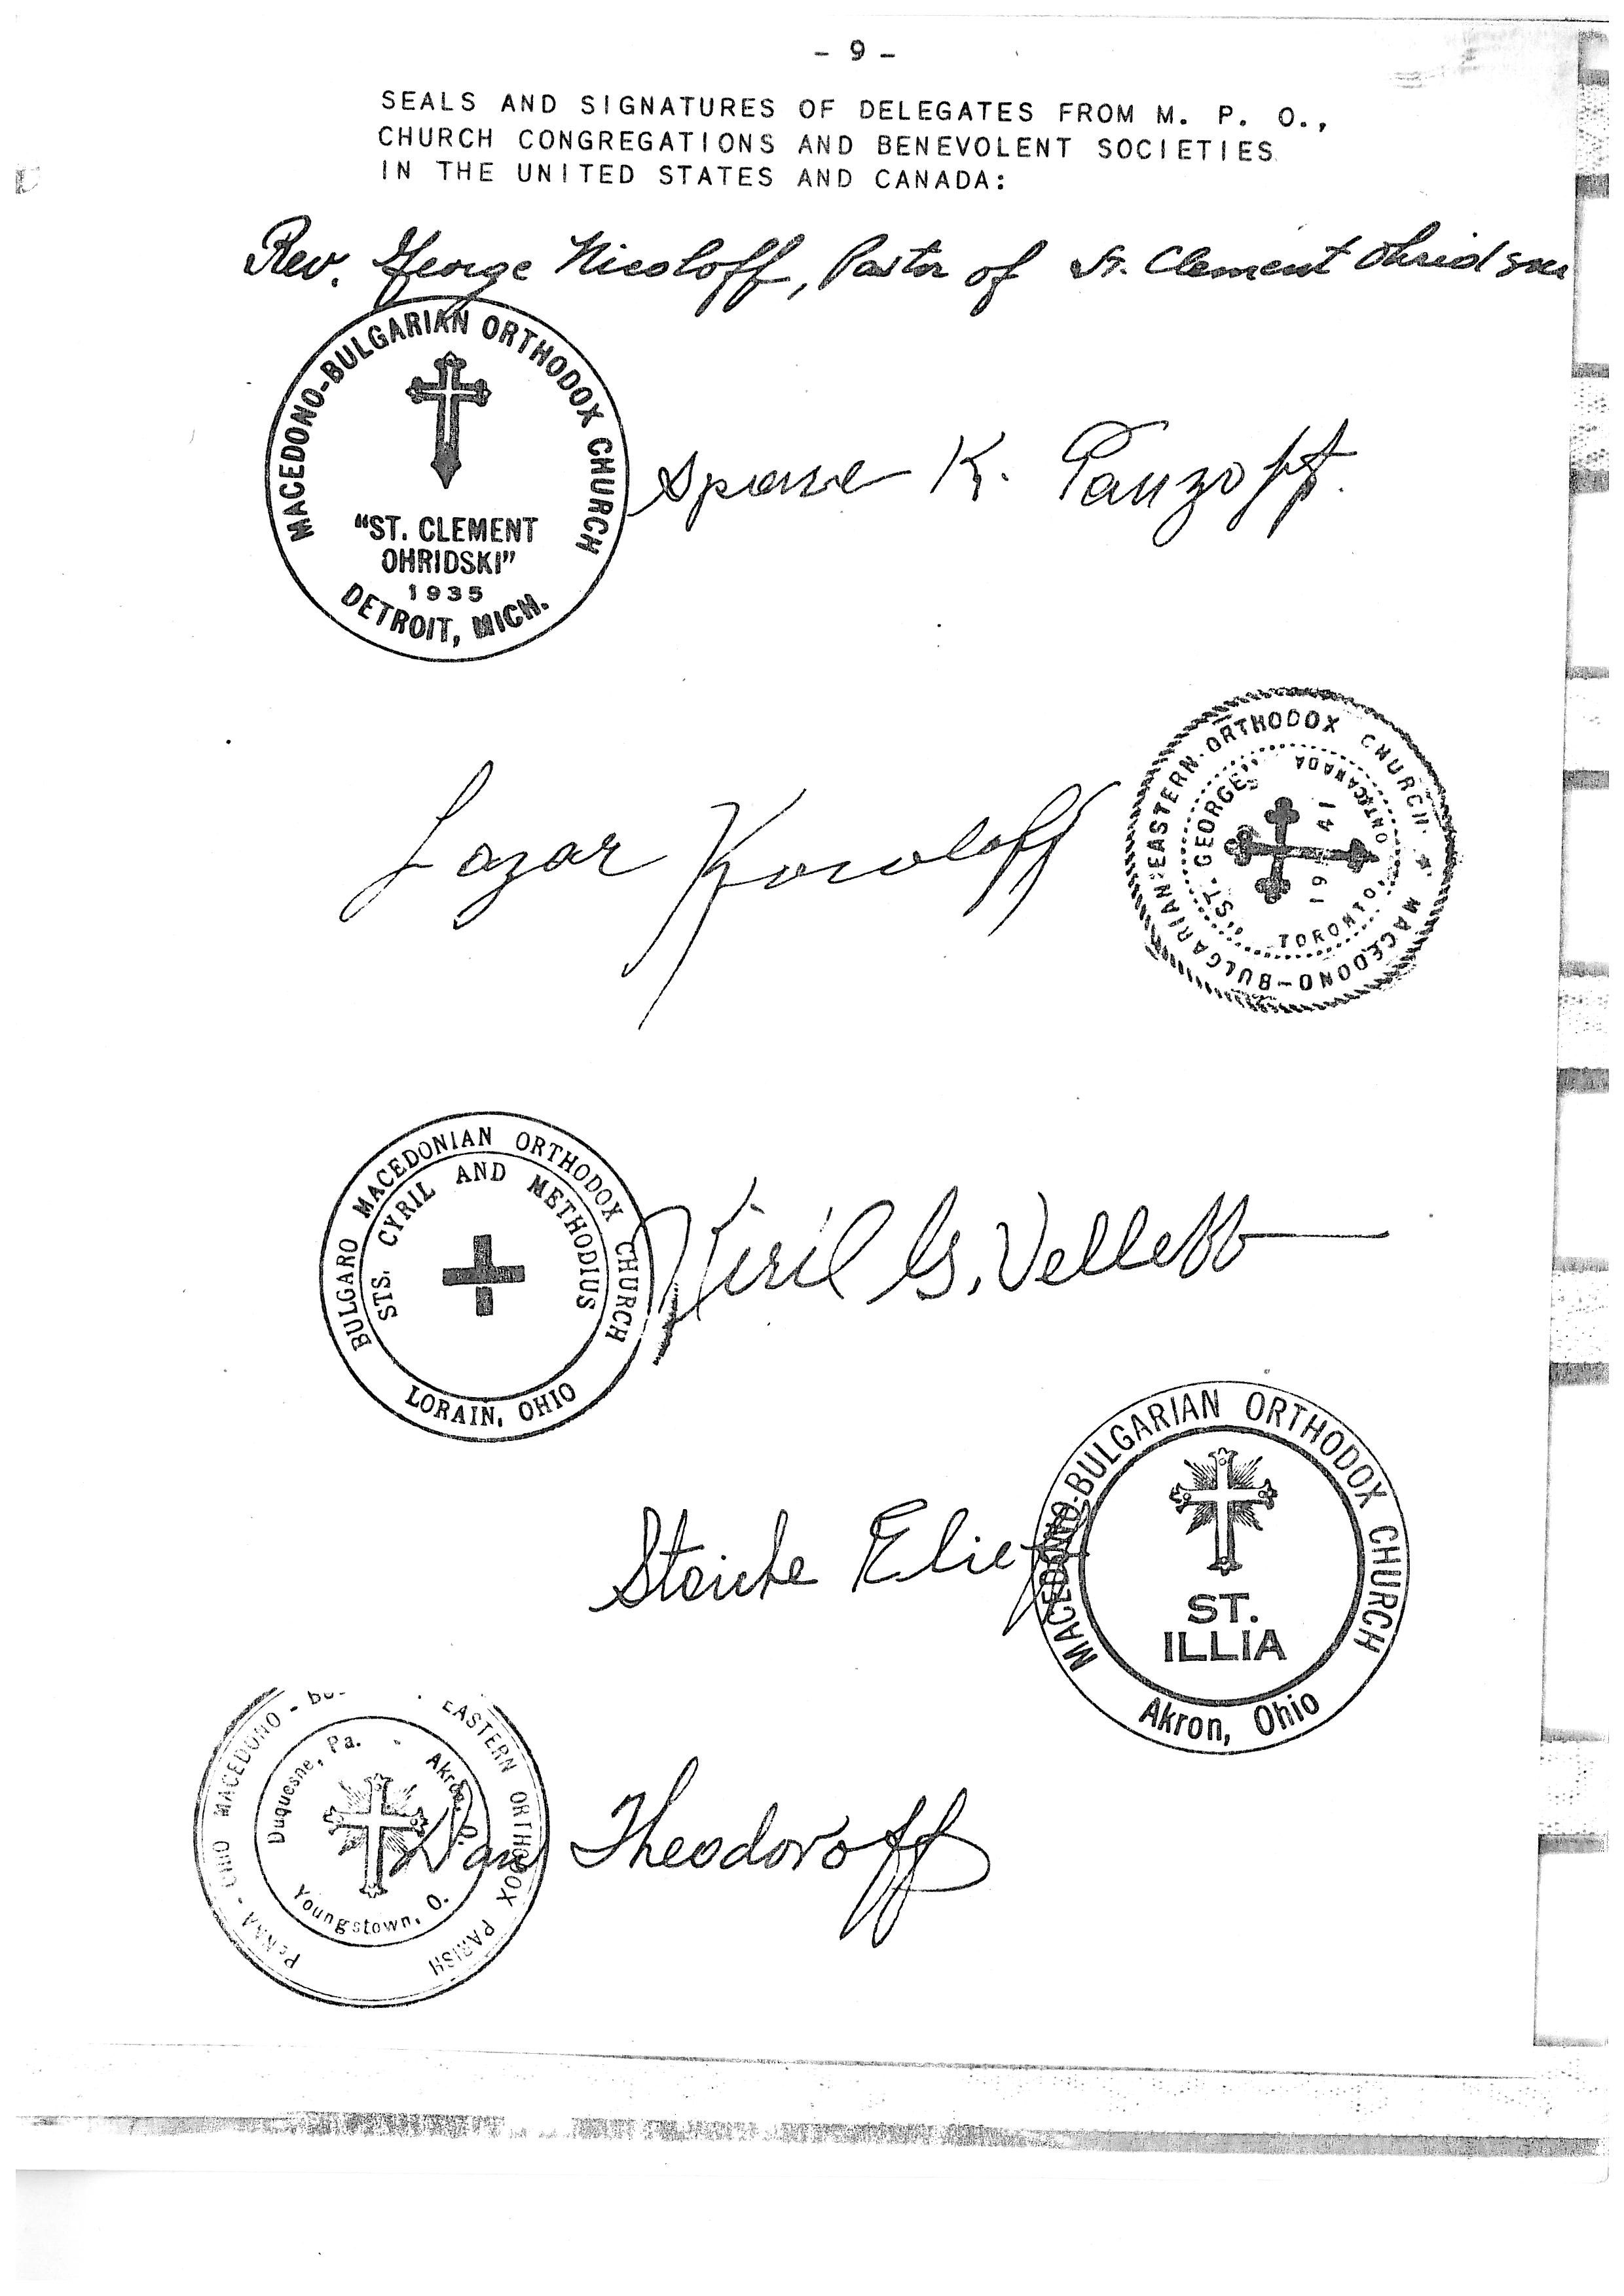 - 9 -
SEALS AND SIGNATURES OF DELEGATES FROM M. P. O.,
CHURCH CONGREGATIONS AND BENEVOLENT SOCIETIES
IN THE UNITED STATES AND CANADA:
Rev. George Nicoloff, Pastor of St. Clement Ohridski
MACEDONO-BULGARIAN ORTHODOX CHURCH
"ST. CLEMENT
OHRIDSKI"
1935
DETROIT, MICH.
K.
MACEDONO-BULGARIAN-EASTERN-ORTHODOX CHURCH
"ST. GEORGE"
1941
TORONTO, ONT. CANADA
Lazar
BULGARO MACEDONIAN ORTHODOX CHURCH
STS. CYRIL AND METHODIUS
LORAIN, OHIO
Kiril G. Velleff
MACEDONO-BULGARIAN ORTHODOX CHURCH
ST.
ILLIA
Akron, Ohio
PENNA - OHIO MACEDONO - EASTERN ORTHODOX PARISH
Duquesne, Pa. Akron, O.
Youngstown, O.
Theodoroff